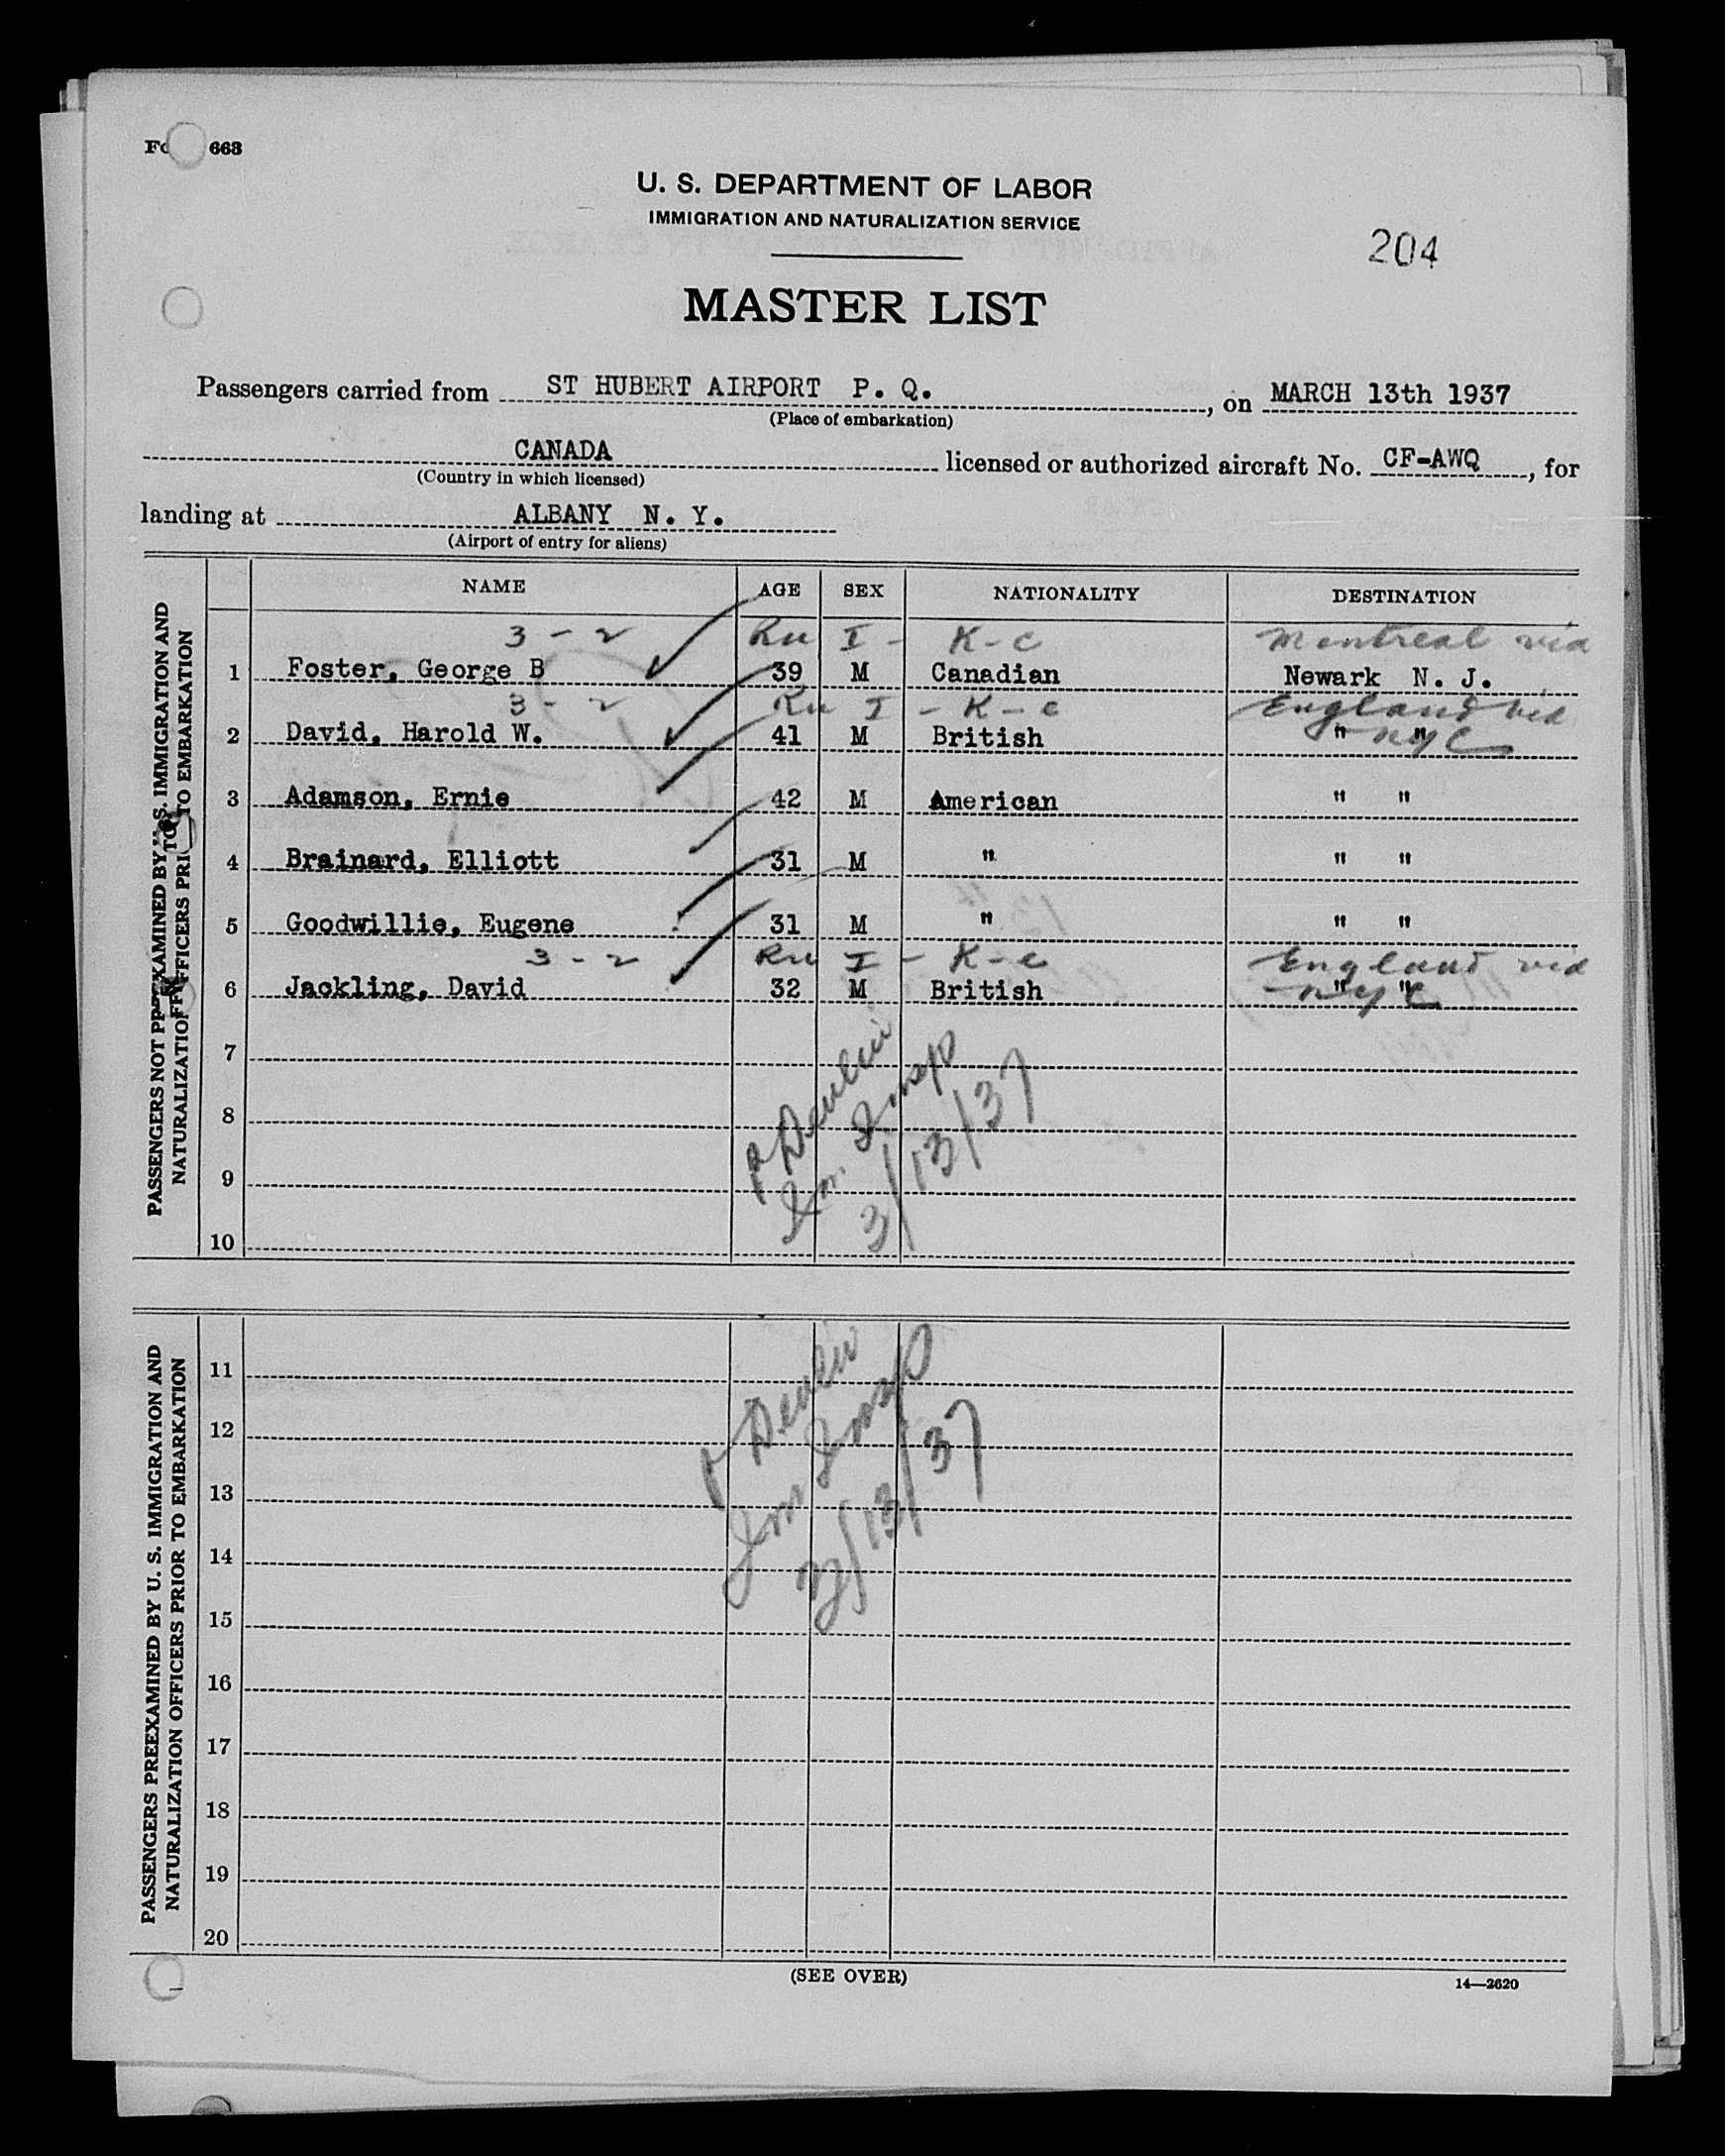 663
U. S. DEPARTMENT OF LABOR
IMMIGRATION AND NATURALIZATION SERVICE
204
MASTER LIST
Passengers carried from ST HUBERT AIRPORT P. Q. , on MARCH 13th 1937
(Place of embarkation)
CANADA licensed or authorized aircraft No. CF-AWQ , for
(Country in which licensed)
landing at ALBANY N. Y.
(Airport of entry for aliens)
NAME AGE SEX NATIONALITY DESTINATION
3 - 2 I - K-C Montreal via
1 Foster, George B 39 M Canadian Newark N. J.
3 - 2 I - K-C England via
2 David, Harold W. 41 M British " " NYC
3 Adamson, Ernie 42 M American " "
4 Brainard, Elliott 31 M " " "
5 Goodwillie, Eugene 31 M " " "
3 - 2 I - K-C England via
6 Jackling, David 32 M British " " NYC
7
8
9
10
Devlin
Im. Insp
3/13/37
PASSENGERS NOT IMMIGRATION AND
TO EMBARKATION
11
12
13
14
15
16
17
18
19
20
Devlin
Im Insp
3/13/37
PASSENGERS PREEXAMINED BY U. S. IMMIGRATION AND
NATURALIZATION OFFICERS PRIOR TO EMBARKATION
(SEE OVER)
14—2620